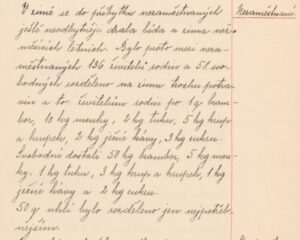 V zimě se do příbytku nezaměstnaných
ještě neodbytněji drala bída a zima než
měsících letních. Bylo proto mezi neza-
městnaných 136 živitelů rodin a 51 svo-
bodných rozděleno na zimu trochu potra-
vin a to: živitelům rodin po 1 q bram-
bor, 10 kg mouky, 2 kg tuku, 5 kg krup
a krupek, 2 kg ječné kávy, 3 kg cukru.
Svobodní dostali 50 kg brambor, 5 kg mou-
ky, 1 kg tuku, 3 kg krup a krupek, 1 kg
ječné kávy a 2 kg cukru.
50 q uhlí bylo rozděleno jen nejpotřeb-
nějším.
Nezaměstnaní.